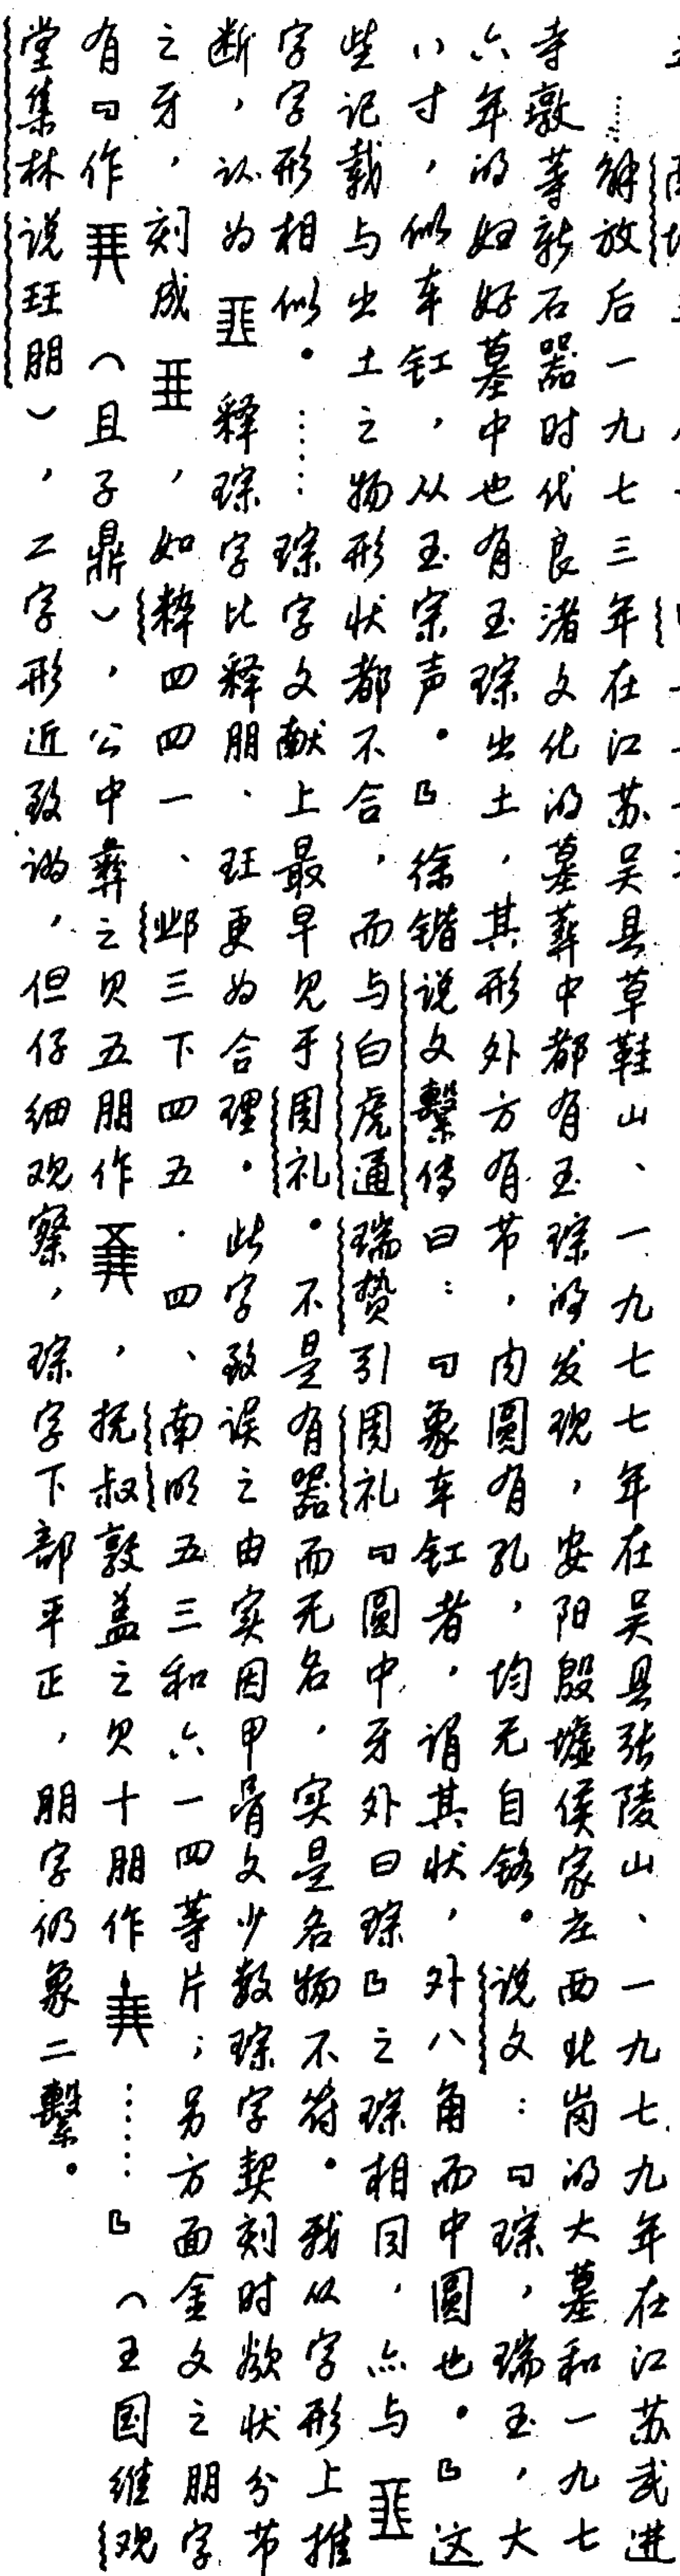 ……解放后一九七三年在江苏吴县草鞋山、一九七七年在吴县张陵山、一九七九年在江苏武进
寺墩等新石器时代良渚文化的墓葬中都有玉琮的发现，安阳殷墟侯家庄西北岗的大墓和一九七
六年的妇好墓中也有玉琮出土，其形外方有节，内圆有孔，均无自铭。说文：「琮，瑞玉，大
八寸，似车釭，从玉宗声。」徐锴说文繫传曰：「象车釭者，谓其状，外八角而中圆也。」这
些记载与出土之物形状都不合，而与白虎通瑞贽引周礼「圆中牙外曰琮」之琮相同，亦与
字字形相似。……琮字文献上最早见于周礼。不是有器而无名，实是名物不符。我从字形上推
断，认为 释琮字比释朋、玨更为合理。此字致误之由实因甲骨文少数琮字契刻时欲状分节
之牙，刻成 ，如粹四四一、邺三下四五·四、南明五三和六一四等片；另方面金文之朋字
有「作 （且子鼎），公中彝之贝五朋作 ，抚叔敦盖之贝十朋作 ……」（王国维观
堂集林说玨朋），二字形近致讹，但仔细观察，琮字下部平正，朋字仍象二繫。